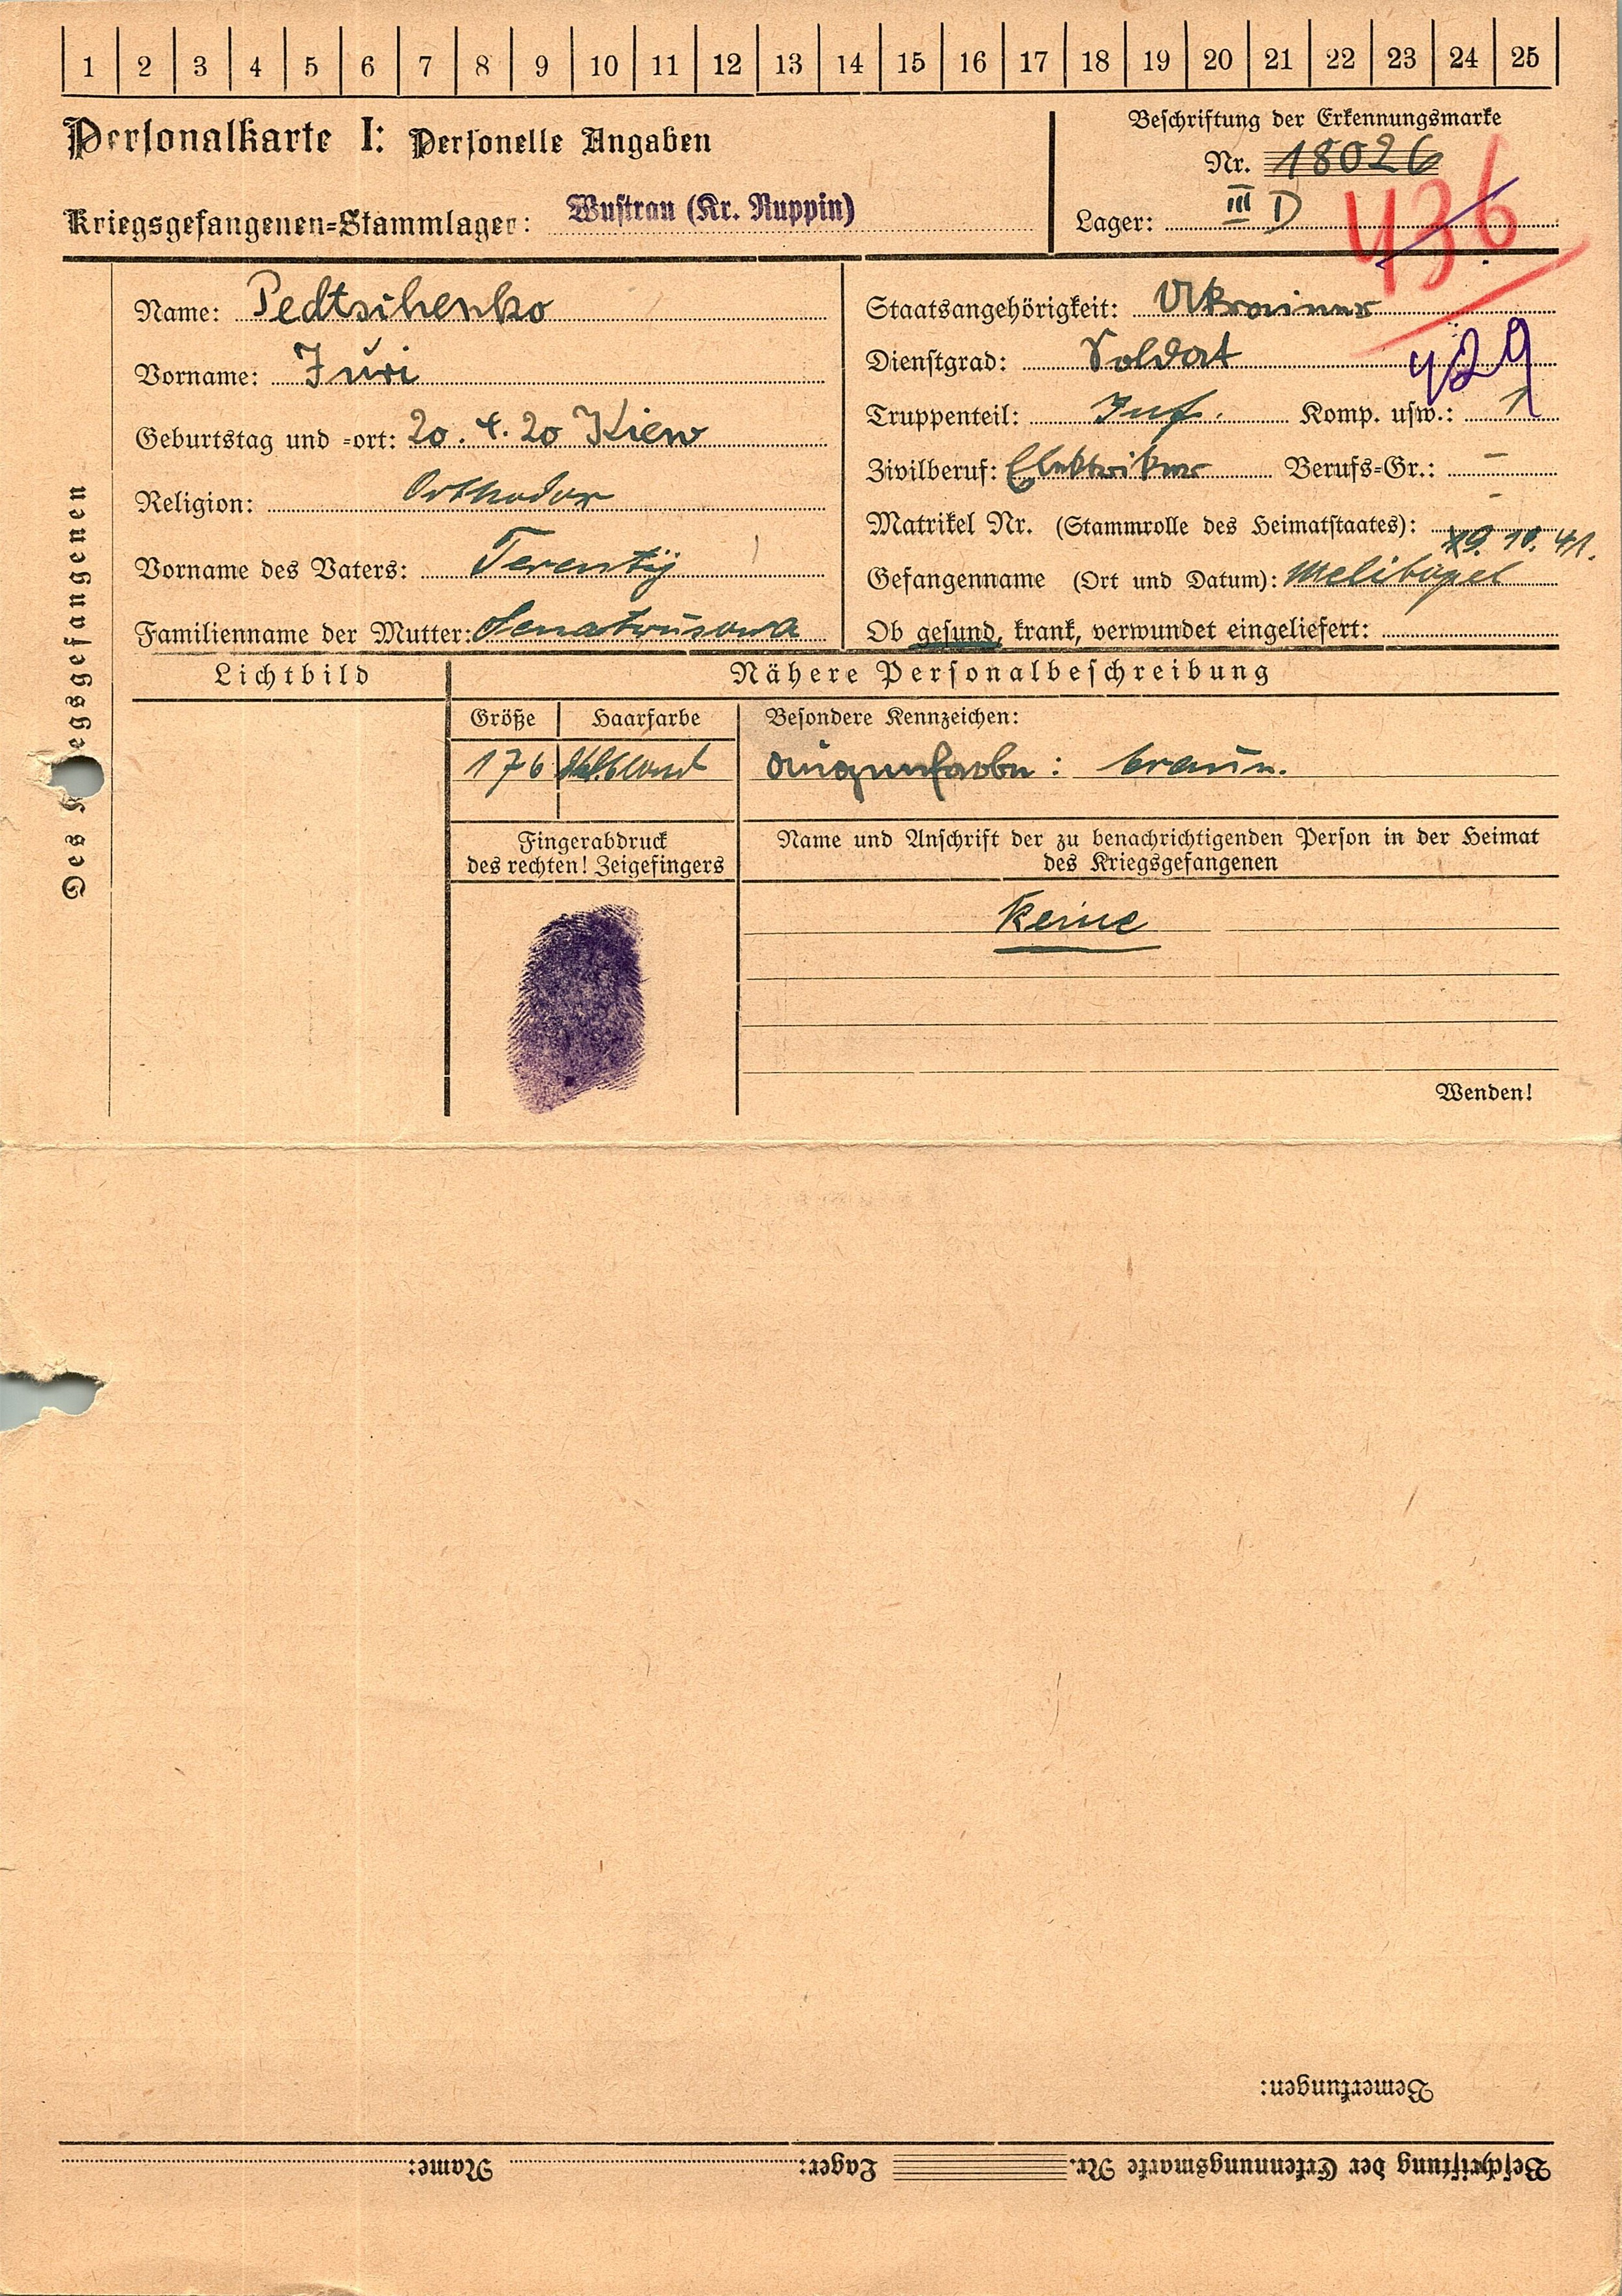 1 2 3 4 5 6 7 8 9 10 11 12 13 14 15 16 17 18 19 20 21 22 23 24 25
Personalkarte I: Personelle Angaben
Kriegsgefangenen-Stammlager: Wustrau (Kr. Ruppin)
Beschriftung der Erkennungsmarke
Nr. 18026
Lager: III D
436
Des Kriegsgefangenen
Name: Pedtschenko
Vorname: Juri
Geburtstag und -ort: 20. 4. 20 Kiew
Religion: Orthodox
Vorname des Vaters: Terentij
Familienname der Mutter:
Staatsangehörigkeit: Ukrainer
Dienstgrad: Soldat
429
Truppenteil: Inf. Komp. usw.: 1
Zivilberuf: Elektriker Berufs-Gr.: –
Matrikel Nr. (Stammrolle des Heimatstaates): –
19. 10. 41.
Gefangenname (Ort und Datum): Melitopel
Ob gesund, krank, verwundet eingeliefert:
Lichtbild
Nähere Personalbeschreibung
Größe Haarfarbe Besondere Kennzeichen:
176 dkl.blond Augenfarbe: braun.
Fingerabdruck
des rechten! Zeigefingers
Name und Anschrift der zu benachrichtigenden Person in der Heimat
des Kriegsgefangenen
Keine
Wenden!
Bemerkungen:
Beschriftung der Erkennungsmarke Nr. Lager: Name: